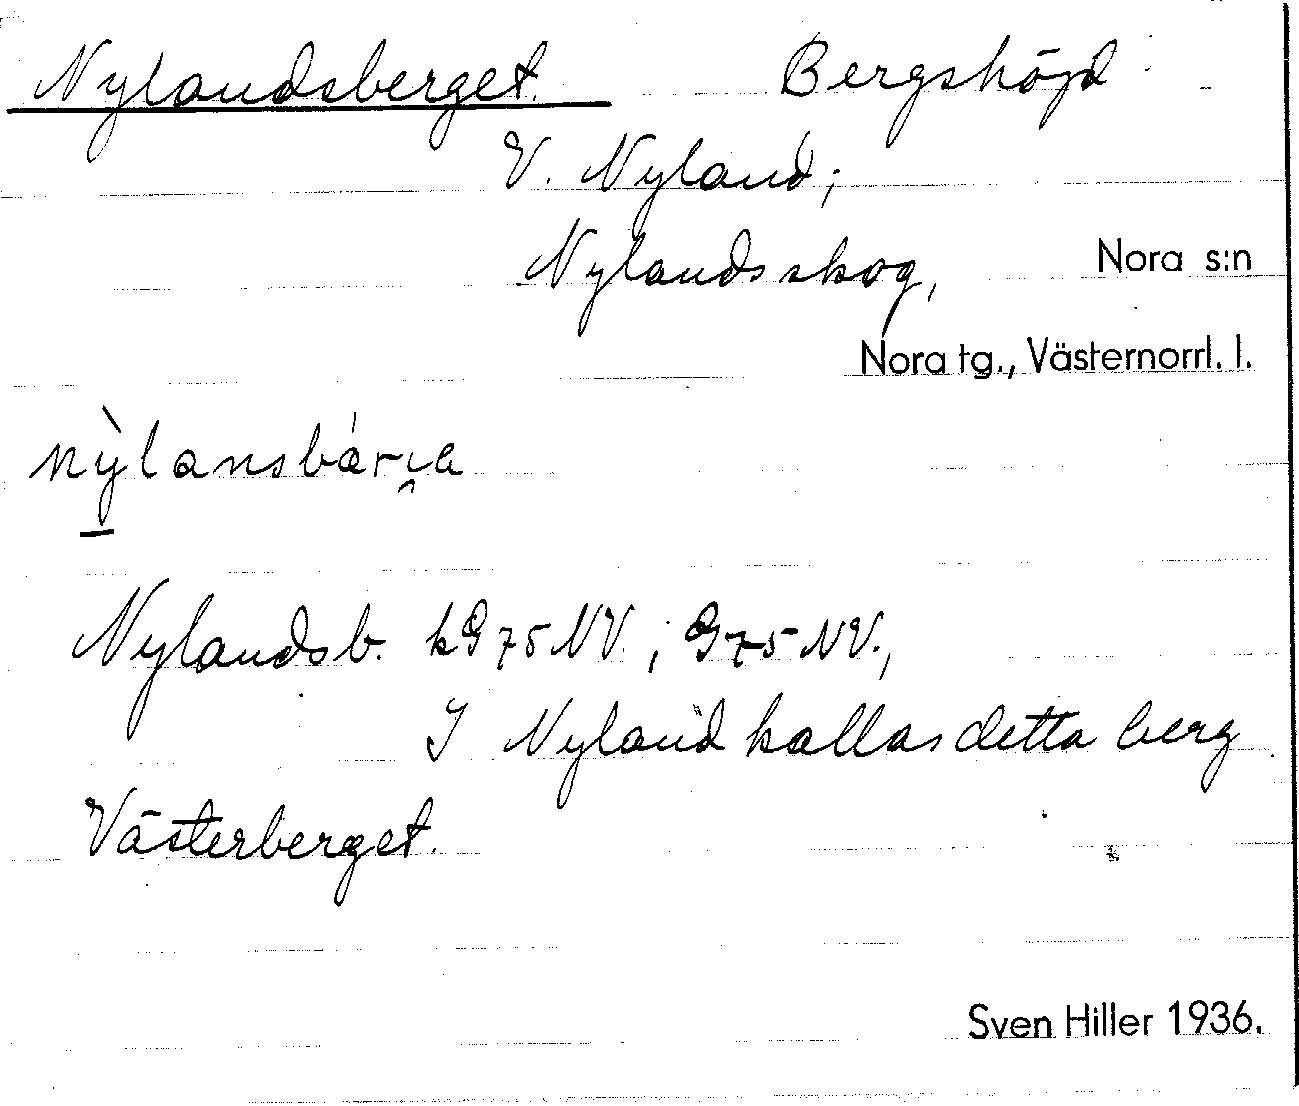 Nylandsberget. Bergshöjd
V. Nyland;
Nylandsskog, Nora s:n
Nora tg., Västernorrl. l.
nỳlansbári̯a
Nylandsb. kG75NV.; G75NV.,
I Nyland kallas detta berg
Västerberget.
Sven Hiller 1936.